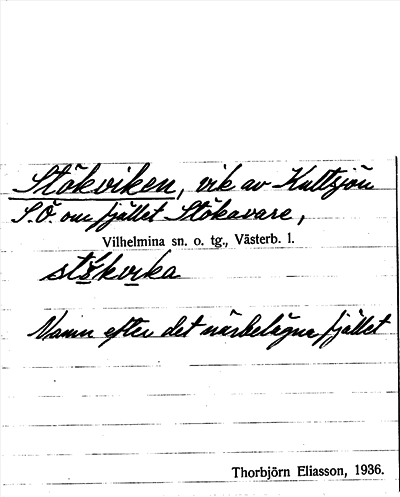 Stökviken, vik av Kultsjön
S.Ö. om fjället Stökavare,
Vilhelmina sn. o. tg., Västerb. l.
stö̀kvika
Namn efter det närbelägna fjället
Thorbjörn Eliasson, 1936.